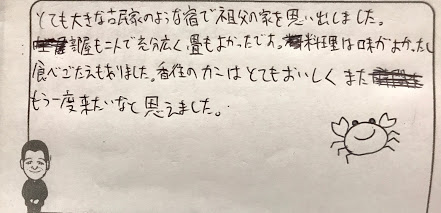 とても大きな古民家のような宿で祖父の家を思い出しました。
部屋も二人で充分広く畳もよかったです。料理は味がよかったし
食べごたえもありました。香住のカニはとてもおいしくまた
もう一度来たいなと思えました。